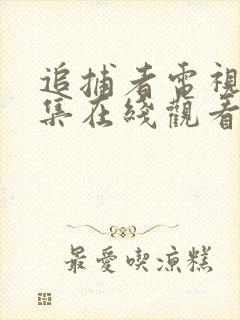 追捕者電視
集在綫觀看
最愛喫涼糕